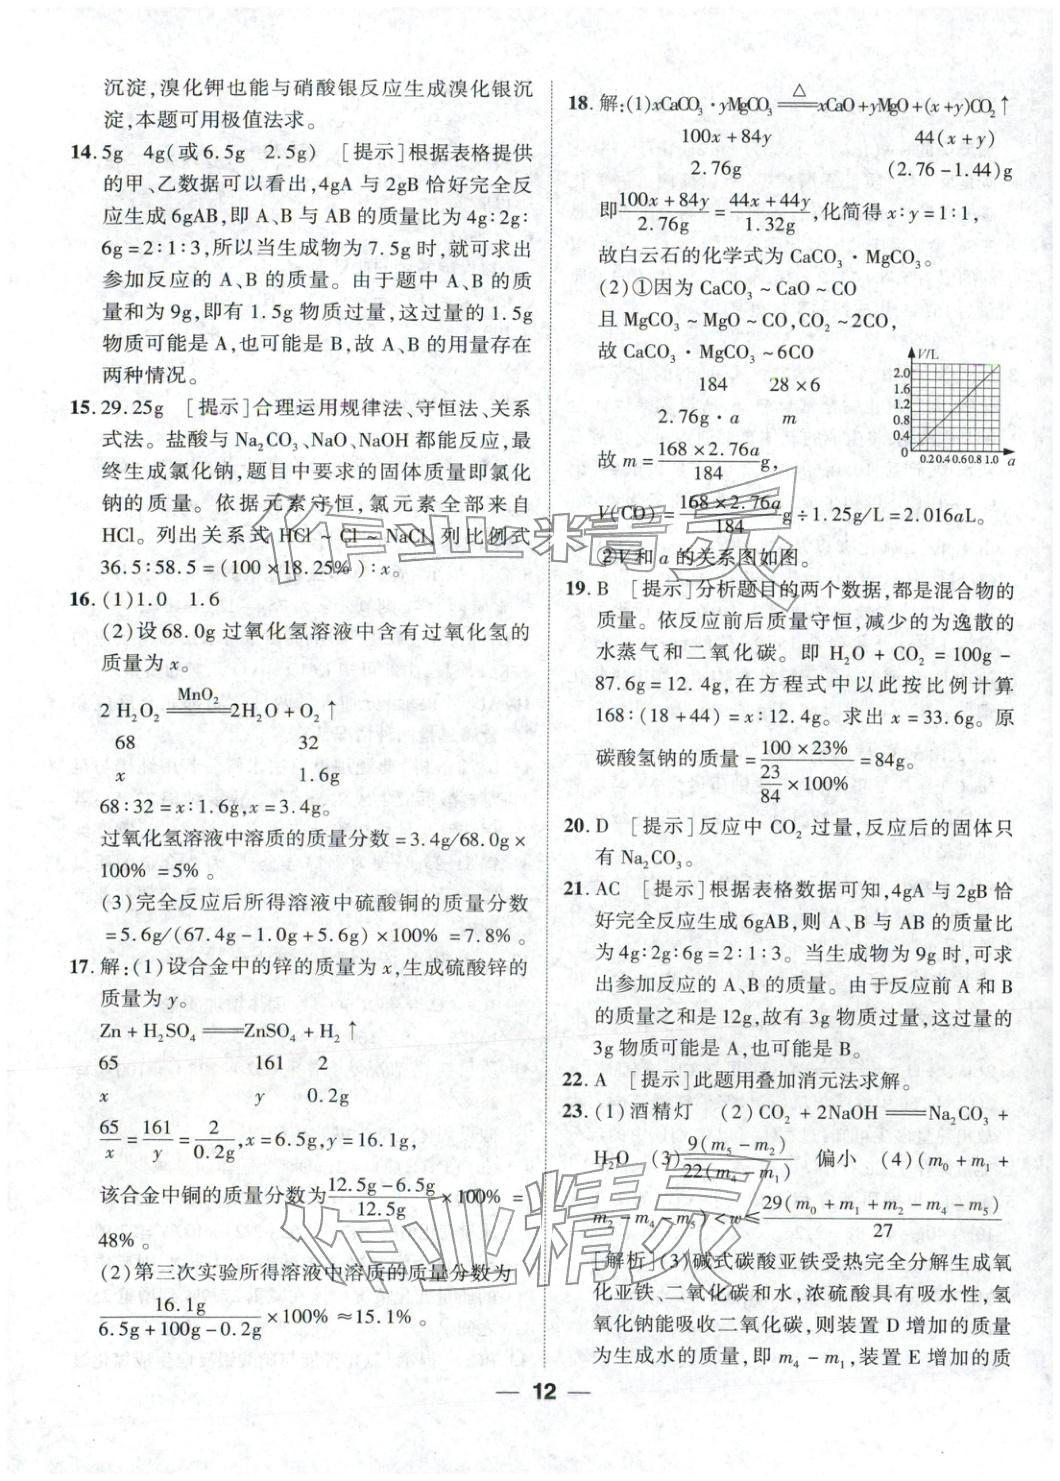 沉淀,溴化钾也能与硝酸银反应生成溴化银沉
淀,本题可用极值法求。
14. 5g 4g(或6.5g 2.5g) [提示]根据表格提供
的甲、乙数据可以看出,4gA 与 2gB 恰好完全反
应生成6gAB,即 A、B 与 AB 的质量比为 4g∶2g∶
6g=2∶1∶3,所以当生成物为 7.5g 时,就可求出
参加反应的 A、B 的质量。由于题中 A、B 的质
量和为9g,即有 1.5g 物质过量,这过量的 1.5g
物质可能是 A,也可能是 B,故 A、B 的用量存在
两种情况。
15. 29.25g [提示]合理运用规律法、守恒法、关系
式法。盐酸与 Na₂CO₃、NaO、NaOH 都能反应,最
终生成氯化钠,题目中要求的固体质量即氯化
钠的质量。依据元素守恒,氯元素全部来自
HCl。列出关系式 HCl ~ Cl ~ NaCl,列比例式
36.5∶58.5=(100×18.25%)∶x。
16. (1)1.0 1.6
(2)设68.0g 过氧化氢溶液中含有过氧化氢的
质量为 x。
2 H₂O₂ ═(MnO₂)═ 2H₂O + O₂↑
68 32
x 1.6g
68∶32=x∶1.6g,x=3.4g。
过氧化氢溶液中溶质的质量分数=3.4g/68.0g×
100%=5%。
(3)完全反应后所得溶液中硫酸铜的质量分数
=5.6g/(67.4g-1.0g+5.6g)×100%=7.8%。
17. 解:(1)设合金中的锌的质量为 x,生成硫酸锌的
质量为 y。
Zn + H₂SO₄ ═══ ZnSO₄ + H₂↑
65 161 2
x y 0.2g
65/x = 161/y = 2/0.2g,x=6.5g,y=16.1g,
该合金中铜的质量分数为 (12.5g-6.5g)/12.5g ×100% =
48%。
(2)第三次实验所得溶液中溶质的质量分数为
16.1g/(6.5g+100g-0.2g) ×100% ≈15.1%。
18. 解:(1)xCaCO₃·yMgCO₃ ═(△)═ xCaO+yMgO+(x+y)CO₂↑
100x+84y 44(x+y)
2.76g (2.76-1.44)g
即 (100x+84y)/2.76g = (44x+44y)/1.32g,化简得 x∶y=1∶1,
故白云石的化学式为 CaCO₃·MgCO₃。
(2)①因为 CaCO₃ ~ CaO ~ CO
且 MgCO₃ ~ MgO ~ CO,CO₂ ~2CO,
故 CaCO₃·MgCO₃ ~6CO
184 28×6
2.76g·a m
故 m = (168×2.76a)/184 g,
V/L
2.0
1.6
1.2
0.8
0.4
0
0.2 0.4 0.6 0.8 1.0 a
V(CO) = (168×2.76a)/184 g÷1.25g/L=2.016aL。
②V 和 a 的关系图如图。
19. B [提示]分析题目的两个数据,都是混合物的
质量。依反应前后质量守恒,减少的为逸散的
水蒸气和二氧化碳。即 H₂O + CO₂ = 100g -
87.6g=12.4g,在方程式中以此按比例计算
168∶(18+44)=x∶12.4g。求出 x=33.6g。原
碳酸氢钠的质量 = (100×23%)/(23/84×100%) =84g。
20. D [提示]反应中 CO₂ 过量,反应后的固体只
有 Na₂CO₃。
21. AC [提示]根据表格数据可知,4gA 与 2gB 恰
好完全反应生成 6gAB,则 A、B 与 AB 的质量比
为4g∶2g∶6g=2∶1∶3。当生成物为 9g 时,可求
出参加反应的 A、B 的质量。由于反应前 A 和 B
的质量之和是12g,故有 3g 物质过量,这过量的
3g 物质可能是 A,也可能是 B。
22. A [提示]此题用叠加消元法求解。
23. (1)酒精灯 (2)CO₂ + 2NaOH ═══ Na₂CO₃ +
H₂O (3) 9(m₅-m₂)/22(m₄-m₁) 偏小 (4)(m₀+m₁+
m₂-m₄-m₅)<w≤ 29(m₀+m₁+m₂-m₄-m₅)/27
[解析](3)碱式碳酸亚铁受热完全分解生成氧
化亚铁、二氧化碳和水,浓硫酸具有吸水性,氢
氧化钠能吸收二氧化碳,则装置 D 增加的质量
为生成水的质量,即 m₄-m₁,装置 E 增加的质
— 12 —
作业精灵
作业精灵